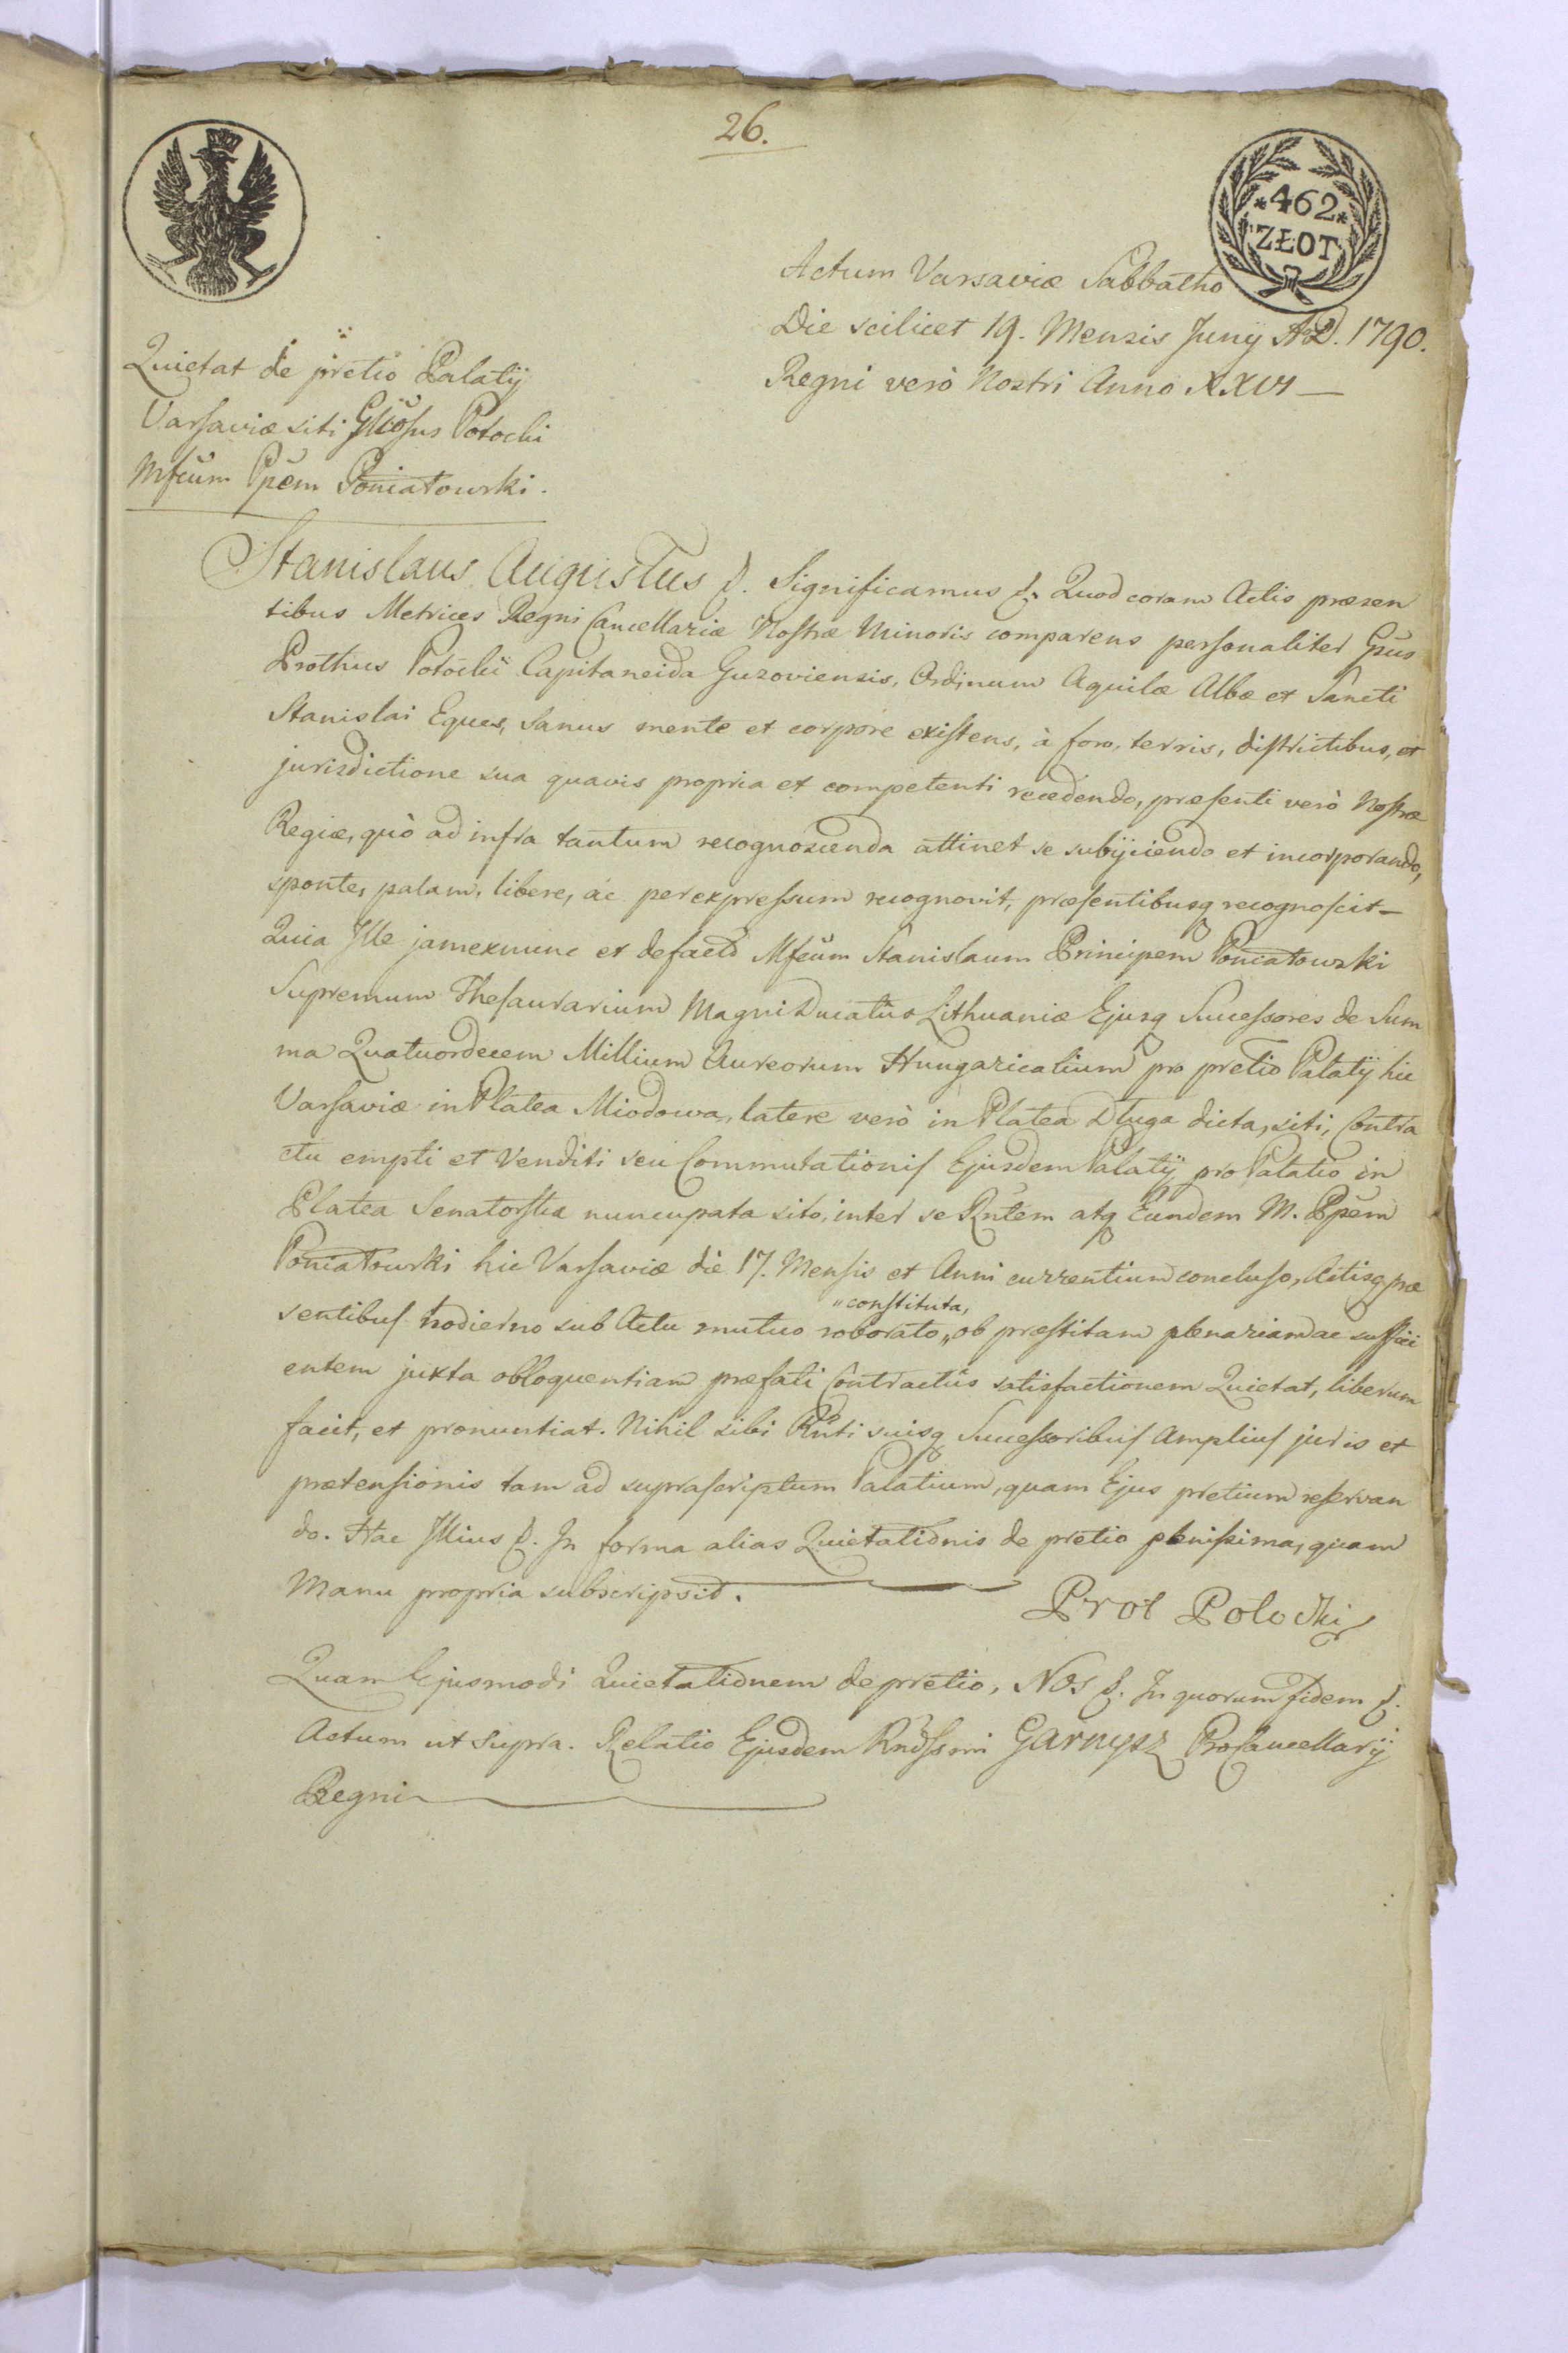 26.
*462*
ZŁOT
Actum Varsaviæ Sabbatho
Die scilicet 19. Mensis Junÿ A.D. 1790.
Regni verò Nostri Anno XXVI —
Quietat de pretio Palatÿ
Varsaviæ siti Gñosus Potocki
Mfcum Ppem Poniatowski.
Stanislaus Augustus &. Significamus &. Quod coram Actis præsen
tibus Metrices Regni Cancellariæ Nostræ Minoris comparens personaliter Gsus
Prothus Potocki Capitaneida Guzoviensis, Ordinum Aquilæ Albæ et Sancti
Stanislai Eques, Sanus mente et corpore existens, à foro, terris, districtibus, et
jurisdictione sua quavis propria et competenti recedendo, præsenti verò Nostræ
Regiæ, quò ad infra tantum recognoscenda attinet se subÿciendo et incorporando,
sponte, palam, libere, ac per expressum recognovit, præsentibusq recognoscit —
Quia Ille jam ex nunc et de facto Mfcum Stanislaum Principem Poniatowski
Supremum Thesaurarium Magni Ducatûs Lithuaniæ Ejusq Successores de Sum
ma Quatuordecem Millium Aureorum Hungaricalium pro pretio Palatÿ hic
Varsaviæ in Platea Miodowa, latere verò in Platea Długa dicta, siti, Contra
ctu empti et Venditi seu Commutationis Ejusdem Palatÿ pro Palatio in
Platea Senatorska nuncupata sito, inter se Rntem atq Eundem M. Ppem
Poniatowski hic Varsaviæ die 17. Mensis et Anni currentium concluso, Actisq præ
„constituta,
sentibus hodierno sub Actu mutuo roborato „ ob præstitam plenariam ac suffici
entem juxta obloquentiam præfati Contractûs satisfactionem Quietat, liberum
facit, et pronuntiat. Nihil sibi Rnti suisq Successoribus Amplius juris et
prætensionis tam ad suprascriptum Palatium, quam Ejus pretium reservan
do. Hac Illius &. In forma alias Quietationis de pretio plenissima, quam
Manu propria subscripsit.
Prot Potocki
Quam Ejusmodi Quietationem de pretio, Nos &. In quorum fidem &.
Actum ut supra. Relatio Ejusdem Rndssmi Garnysz ProCancellarÿ
Regni